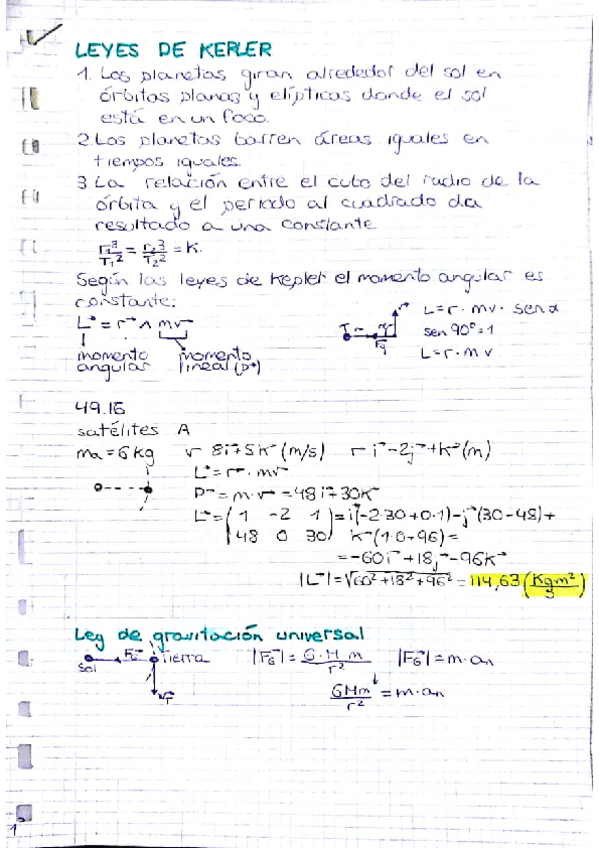 LEYES DE KEPLER
1. Los planetas giran alrededor del sol en
órbitas planas y elípticas donde el sol
está en un foco.
2. Los planetas barren áreas iguales en
tiempos iguales.
3 La relación entre el cubo del radio de la
órbita y el periodo al cuadrado da
resultado a una constante
r₁³/T₁² = r₂³/T₂² = K.
Según las leyes de Kepler el momento angular es
constante:
L→ = r→ ∧ mv→
momento angular
momento lineal (p→)
L = r · mv · sen α
sen 90° = 1
L = r · m v
49.16
satélites A
ma = 6 kg v→ 8i→+5k→ (m/s) r→ i→-2j→+k→ (m)
L→ = r→ · mv→
P→ = m · v→ = 48i→+30k→
L→ = (1 -2 1 / 48 0 30) = i→(-2·30+0·1)-j→(30-48)+
k→(1·0+96) =
= -60i→+18j→-96k→
|L→| = √60²+18²+96² = 114,63 (Kgm²/s)
Ley de gravitación universal
Sol FG→ Tierra |FG→| = G·M m/r² |FG→| = m·an
v→
GMm/r² = m·an
1